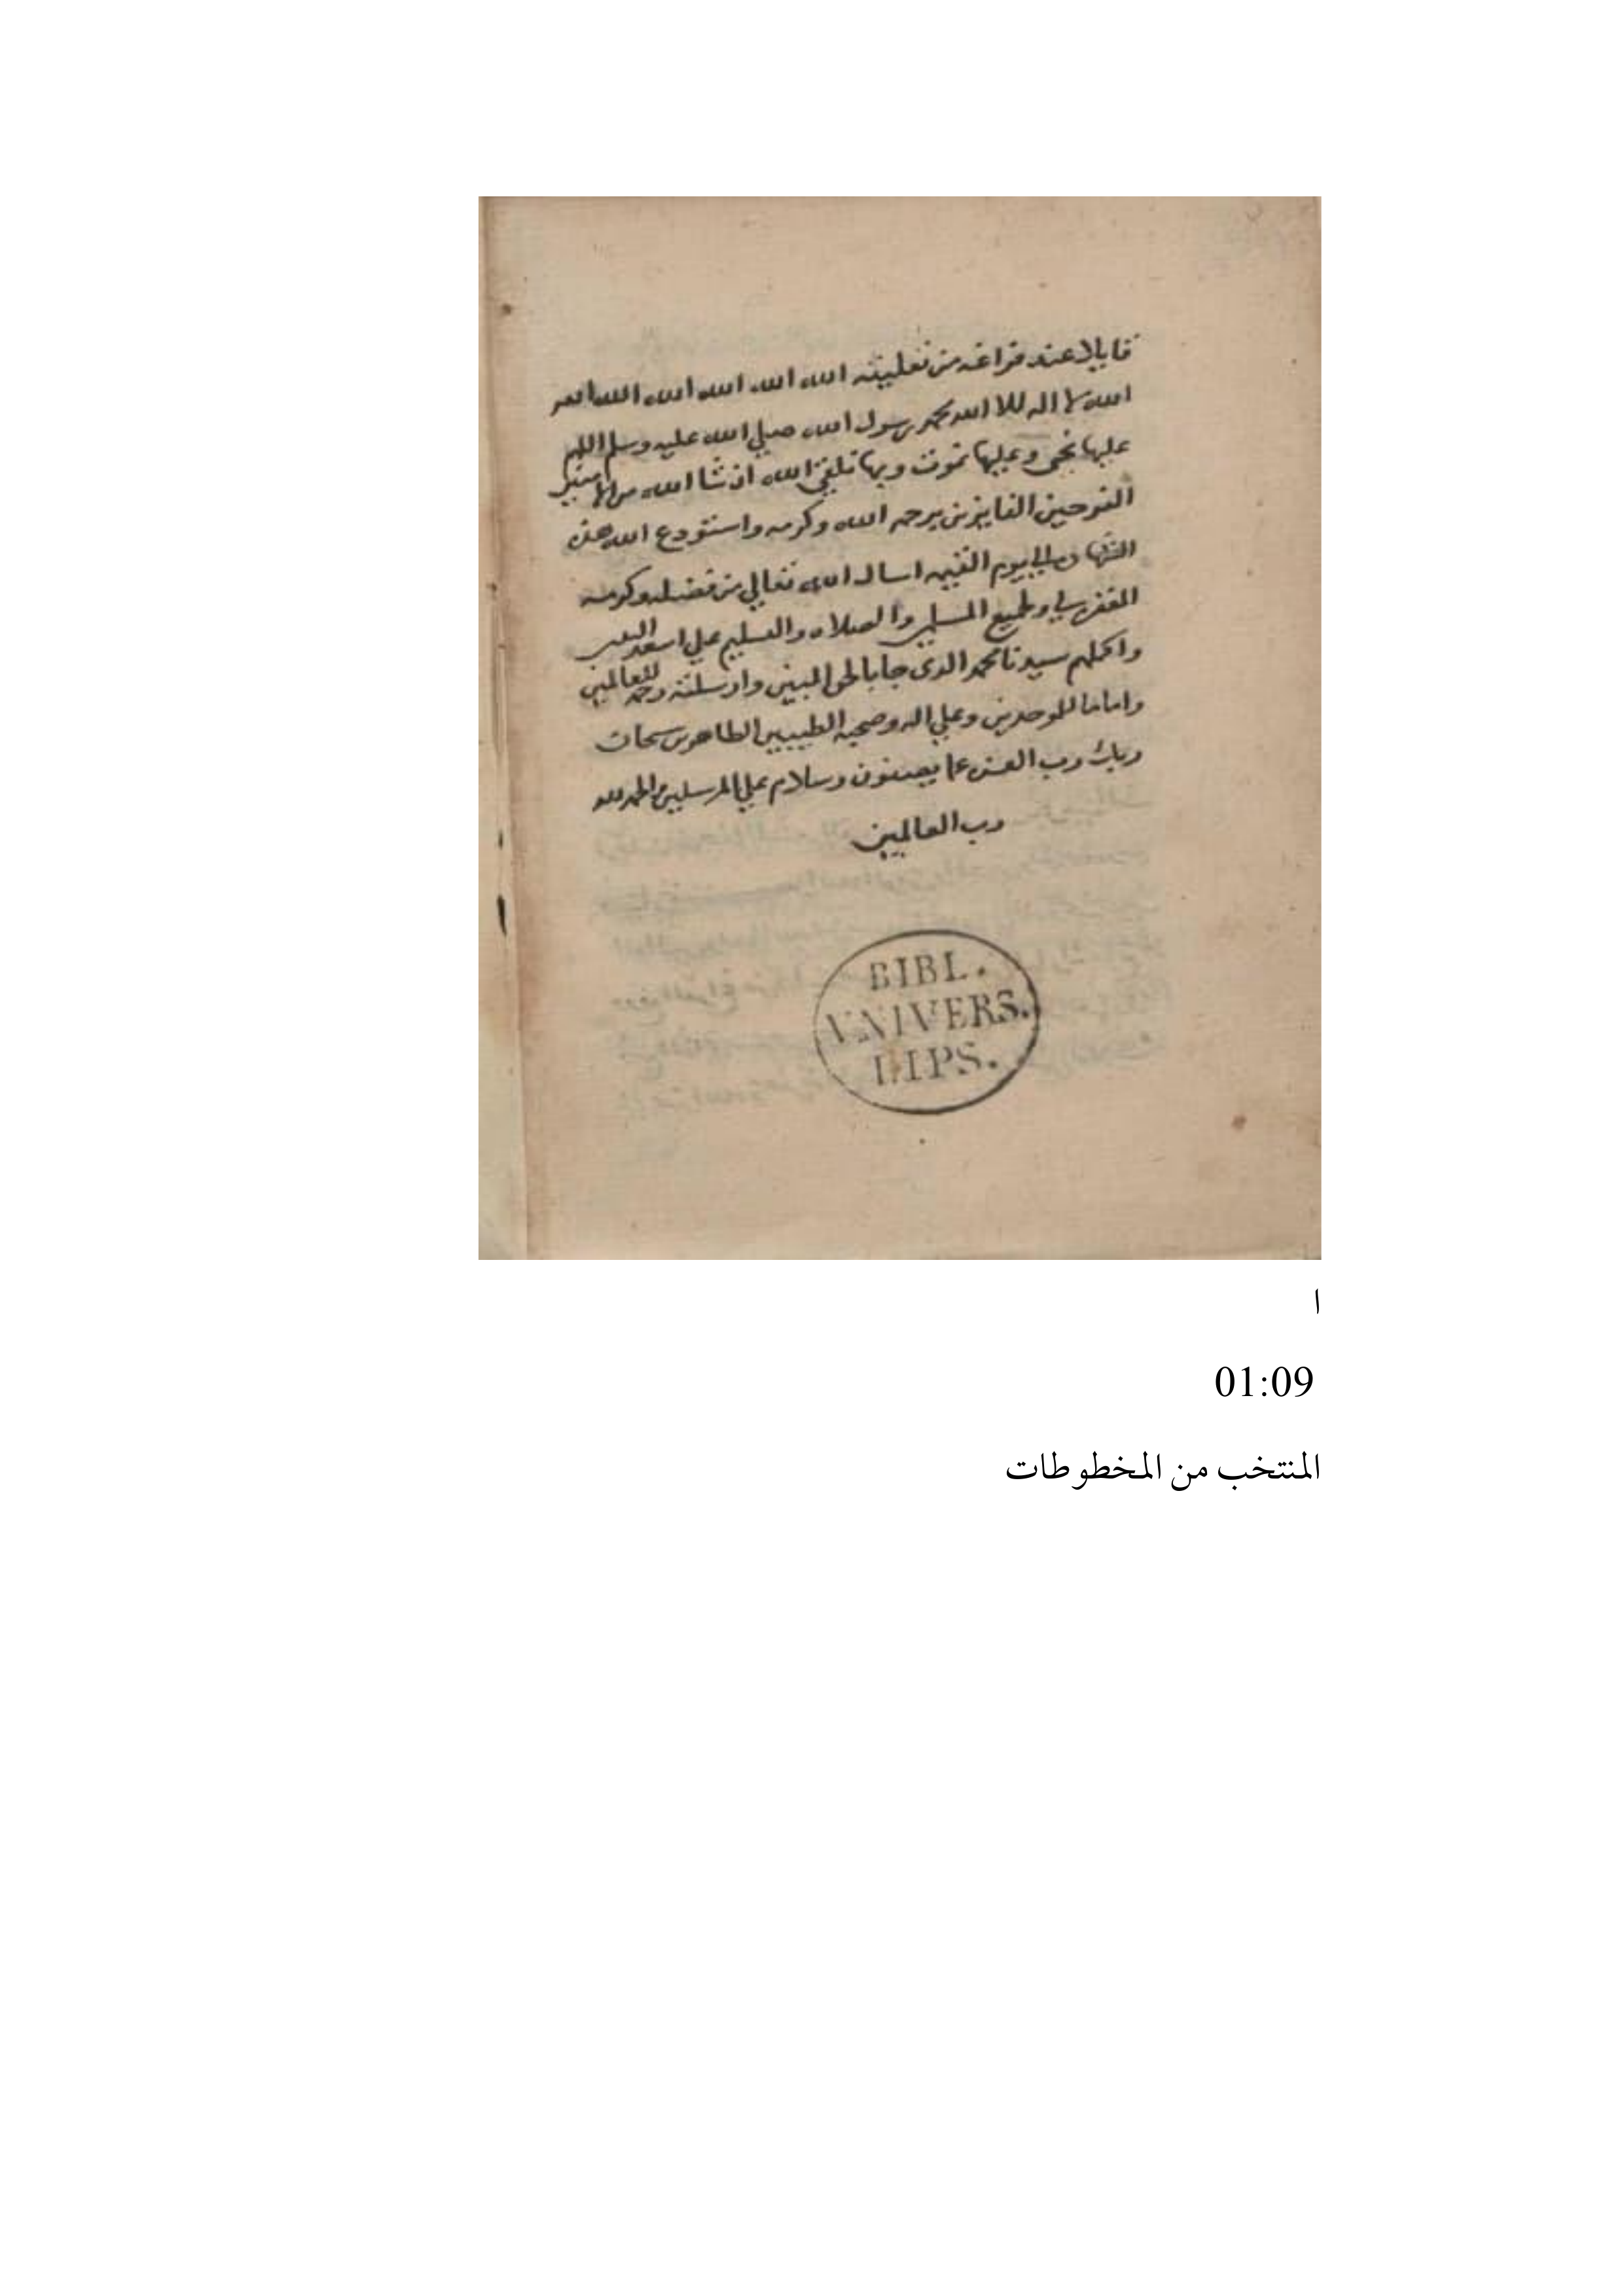 قايلا عند فراغه من تعليقه الله الله الله الله الله الله
الله لا اله الا الله محمد رسول الله صلي الله عليه وسلم اللهم
عليها نحي وعليها نموت وبها نلقي الله ان شا الله من الامنين
الفرحين الفايزين برحمه الله وكرمه واستودع الله هذه
الشهاده الي يوم القيمه اسال الله تعالي من فضله وكرمه
المغفره لي ولجميع المسلمين والصلاه والتسليم علي اسعد
واكملهم سيدنا محمد الذي جا بالحق المبين وارسلته رحمه للعالمين
واماما للموحدين وعلي اله وصحبه الطيبين الطاهرين سبحان
ربك رب العزه عما يصفون وسلام علي المرسلين والحمد لله
رب العالمين
BIBL.
VNIVERS.
LIPS.
ا
01:09
المنتخب من المخطوطات